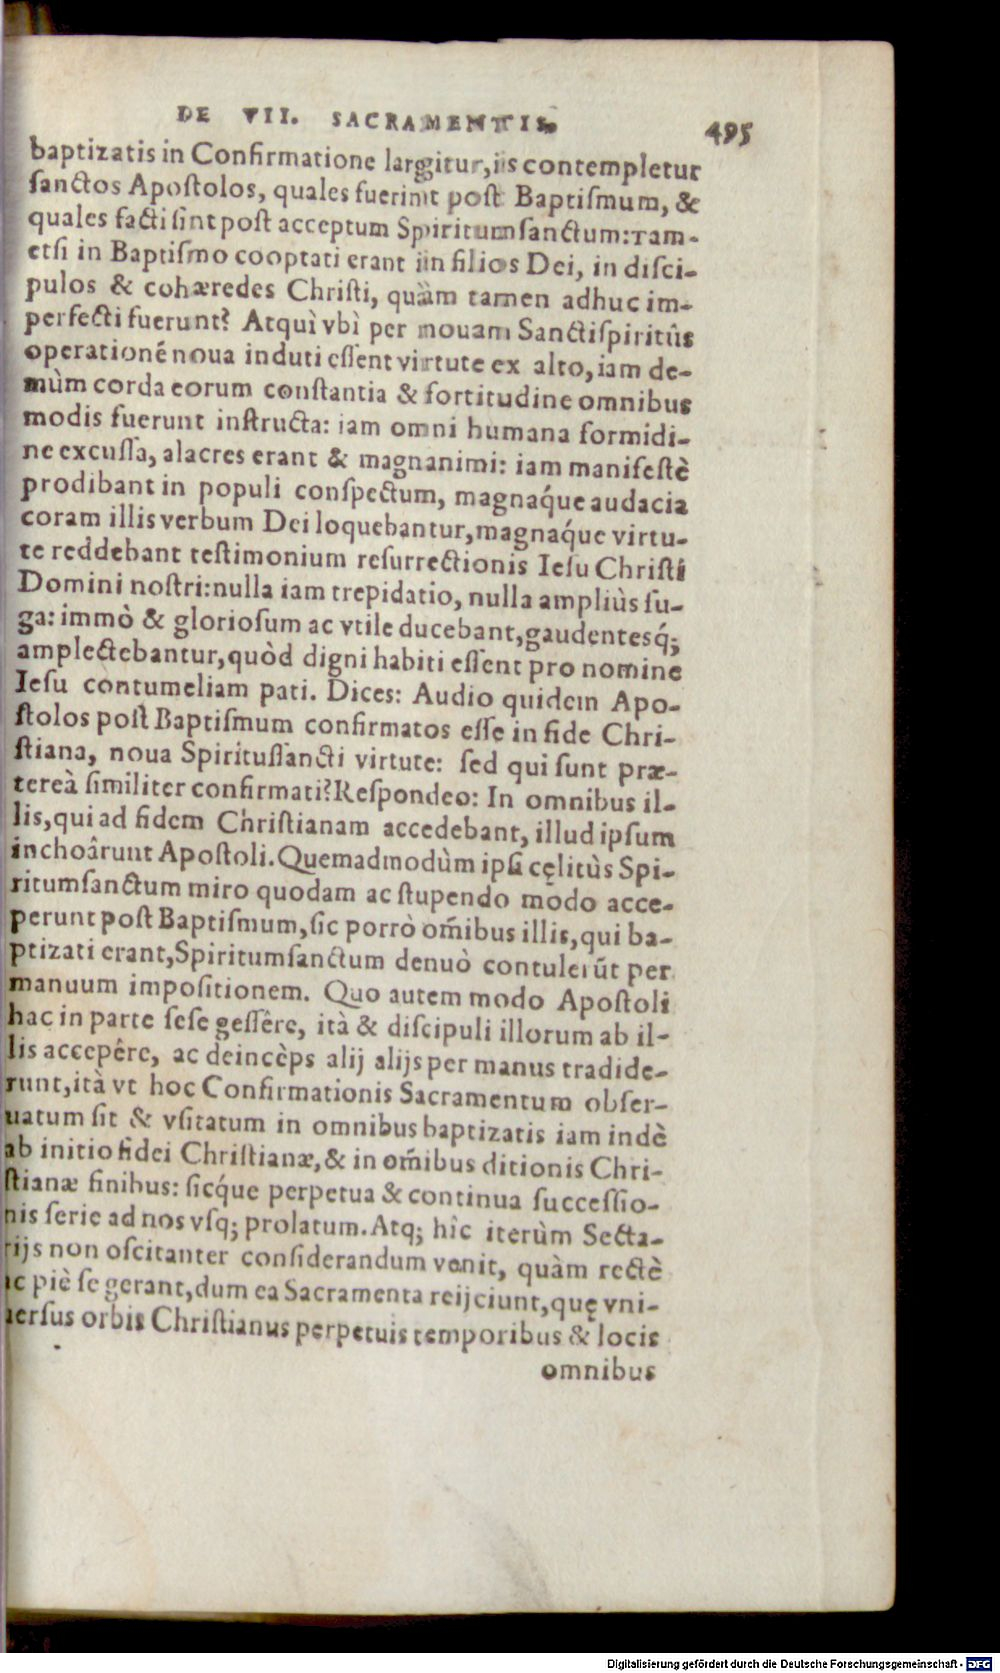 DE VII. SACRAMENTIS. 495
baptizatis in Confirmatione largitur, iis contempletur
sanctos Apostolos, quales fuerint post Baptismum, &
quales facti sint post acceptum Spiritumsanctum: Tam-
etsi in Baptismo cooptati erant in filios Dei, in disci-
pulos & cohæredes Christi, quàm tamen adhuc im-
perfecti fuerunt? Atquì vbì per nouam Sanctispiritûs
operationẽ noua induti essent virtute ex alto, iam de-
mùm corda eorum constantia & fortitudine omnibus
modis fuerunt instructa: iam omni humana formidi-
ne excussa, alacres erant & magnanimi: iam manifestè
prodibant in populi conspectum, magnaq́ue audacia
coram illis verbum Dei loquebantur, magnaq́ue virtu-
te reddebant testimonium resurrectionis Iesu Christi
Domini nostri: nulla iam trepidatio, nulla ampliùs fu-
ga: immò & gloriosum ac vtile ducebant, gaudentesq́;
amplectebantur, quòd digni habiti essent pro nomine
Iesu contumeliam pati. Dices: Audio quidem Apo-
stolos post Baptismum confirmatos esse in fide Chri-
stiana, noua Spiritussancti virtute: sed qui sunt præ-
tereà similiter confirmati? Respondeo: In omnibus il-
lis, qui ad fidem Christianam accedebant, illud ipsum
inchoârunt Apostoli. Quemadmodùm ipsi cęlitùs Spi-
ritumsanctum miro quodam ac stupendo modo acce-
perunt post Baptismum, sic porrò om̃ibus illis, qui ba-
ptizati erant, Spiritumsanctum denuò contulerũt per
manuum impositionem. Quo autem modo Apostoli
hac in parte sese gessêre, ità & discipuli illorum ab il-
lis accepêre, ac deincèps alij alijs per manus tradide-
runt, ità vt hoc Confirmationis Sacramentum obser-
uatum sit & vsitatum in omnibus baptizatis iam indè
ab initio fidei Christianæ, & in om̃ibus ditionis Chri-
stianæ finibus: sicq́ue perpetua & continua successio-
nis serie ad nos vsq; prolatum. Atq; hîc iterùm Secta-
rijs non oscitanter considerandum venit, quàm rectè
ac piè se gerant, dum ea Sacramenta reijciunt, quę vni-
uersus orbis Christianus perpetuis temporibus & locis
omnibus
Digitalisierung gefördert durch die Deutsche Forschungsgemeinschaft - DFG